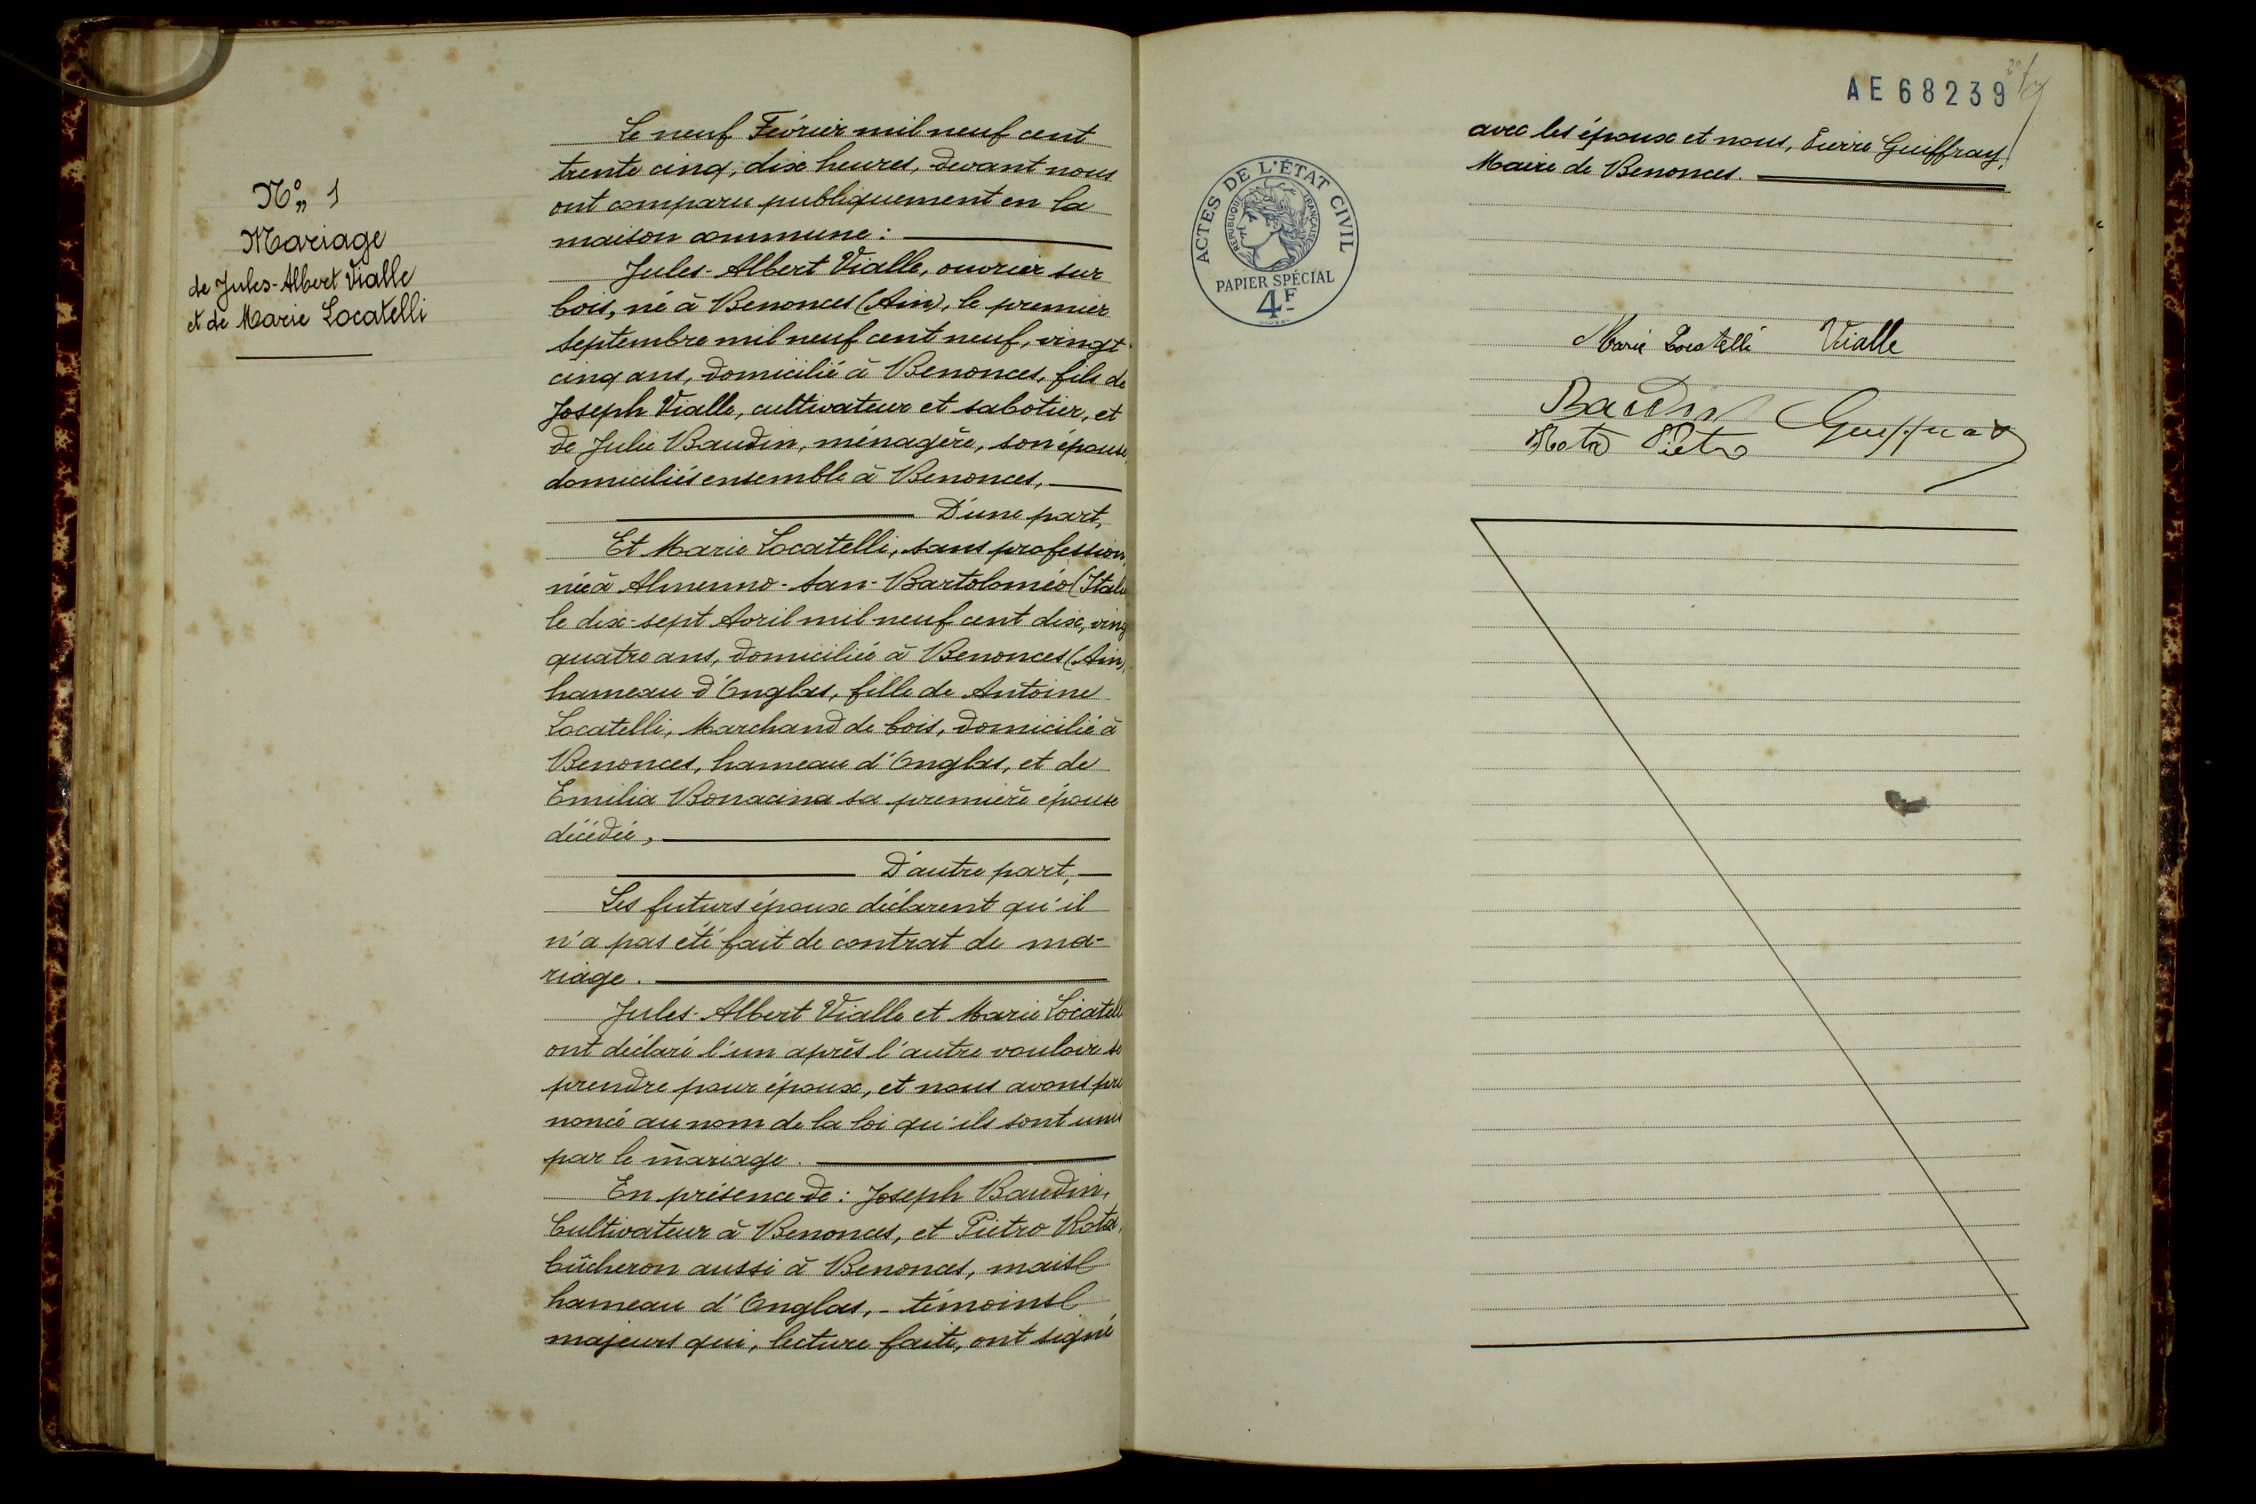 N° 1
Mariage
de Jules-Albert Vialle
et de Marie Locatelli
Le neuf Février mil neuf cent
trente cinq, dix heures, devant nous
ont comparu publiquement en la
maison commune :
Jules-Albert Vialle, ouvrier sur
bois, né à Benonces (Ain), le premier
septembre mil neuf cent neuf, vingt-
cinq ans, domicilié à Benonces, fils de
Joseph Vialle, cultivateur et sabotier, et
de Julie Baudin, ménagère, son épouse,
domiciliés ensemble à Benonces,
D'une part,
Et Marie Locatelli, sans profession,
née à Almenno-San-Bartoloméo (Itali
le dix-sept Avril mil neuf cent dix, ving
quatre ans, domiciliée à Benonces (Ain),
hameau d'Onglas, fille de Antoine
Locatelli, Marchand de bois, domicilié à
Benonces, hameau d'Onglas, et de
Emilia Bonacina sa première épouse
décédée,
D'autre part,
Les futurs époux déclarent qu'il
n'a pas été fait de contrat de ma-
riage.
Jules-Albert Vialle et Marie Locatelli
ont déclaré l'un après l'autre vouloir se
prendre pour époux, et nous avons pro
noncé au nom de la loi qu'ils sont unis
par le mariage.
En présence de : Joseph Baudin,
Cultivateur à Benonces, et Pietro Rota,
bûcheron aussi à Benonces, mais
hameau d'Onglas, - témoins
majeurs qui, lecture faite, ont signé
AE 68239
avec les époux et nous, Pierre Guiffray,
Maire de Benonces.
ACTES DE L'ÉTAT CIVIL
RÉPUBLIQUE FRANÇAISE
PAPIER SPÉCIAL
4F
Marie Locatelli Vialle
Baudin Guiffray
Rota Pietro